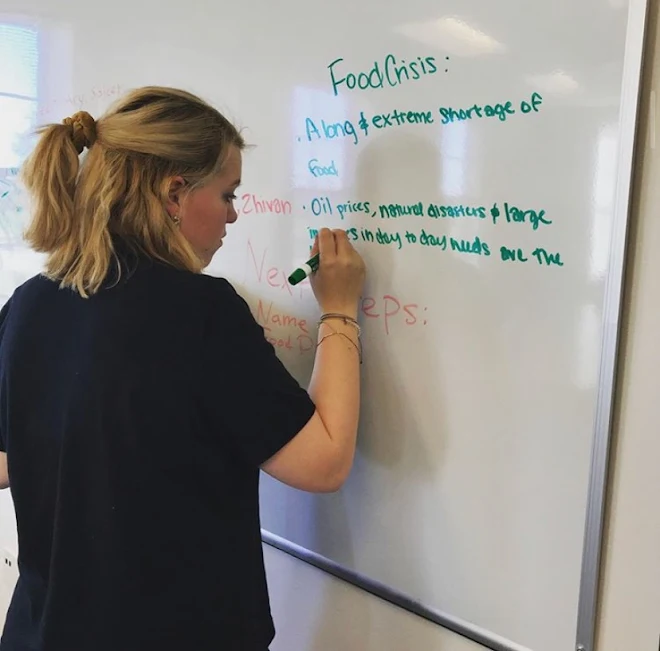 Food Crisis:
. A long & extreme shortage of
food
Zhivan
. Oil prices, natural disasters & large
in day to day needs are the
Name
Food